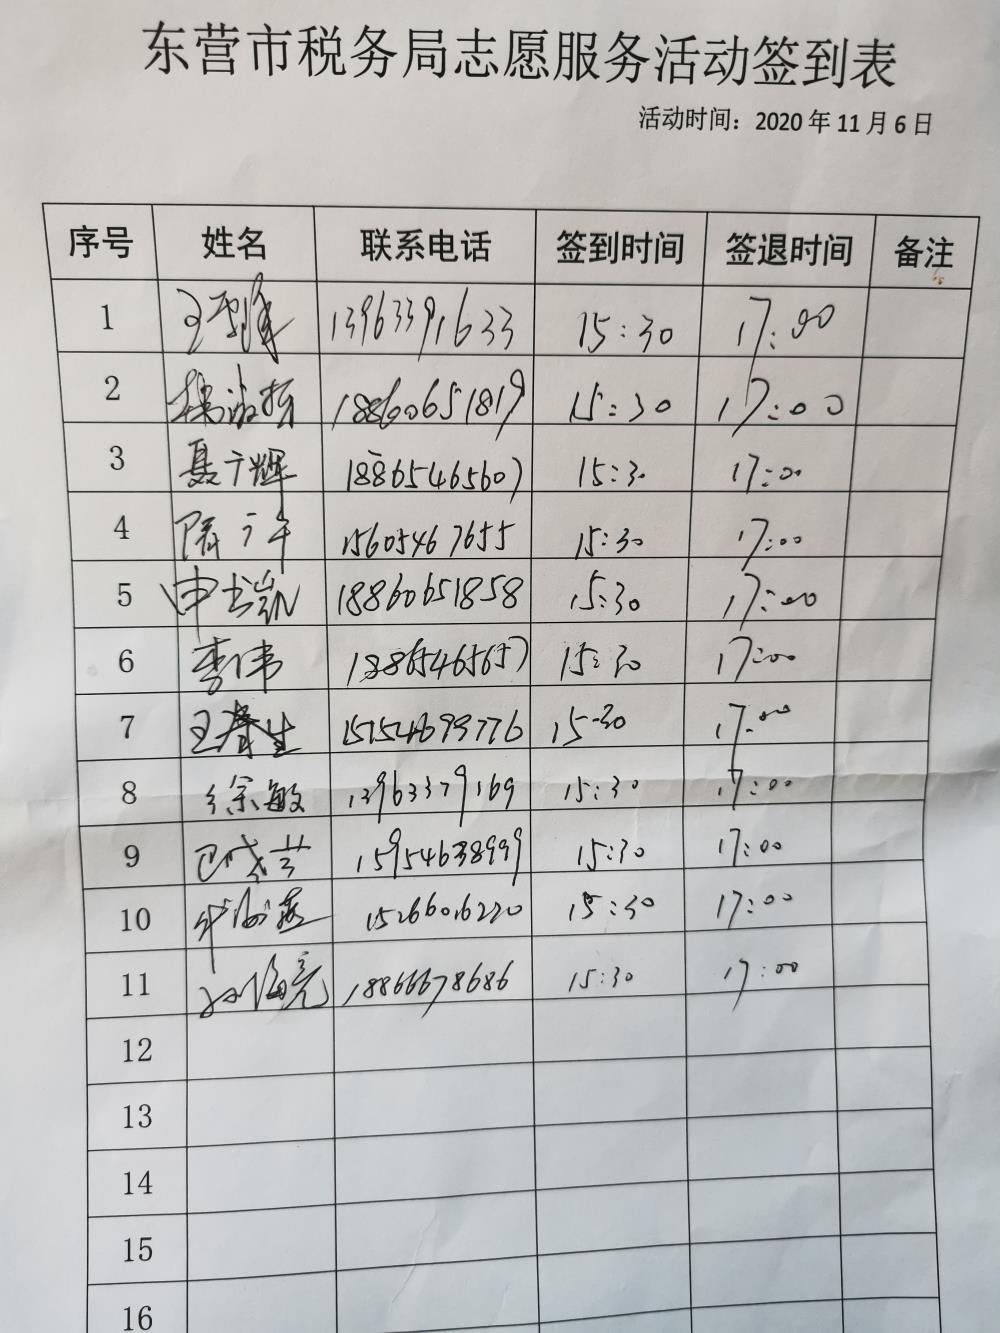 东营市税务局志愿服务活动签到表
活动时间：2020年11月6日
序号 姓名 联系电话 签到时间 签退时间 备注
1 13963391633 15:30 17:00
2 18860651819 15:30 17:00
3 聂广辉 18865465607 15:30 17:00
4 隋广午 15605467655 15:30 17:00
5 申书凯 18860651858 15:30 17:00
6 李伟 18865465657 15:30 17:00
7 王春生 15154693776 15-30 17:00
8 徐敏 13963379169 15:30 17:00
9 巴戈兰 15954638999 15:30 17:00
10 15266016220 15:30 17:00
11 孙海亮 18866678686 15:30 17:00
12
13
14
15
16